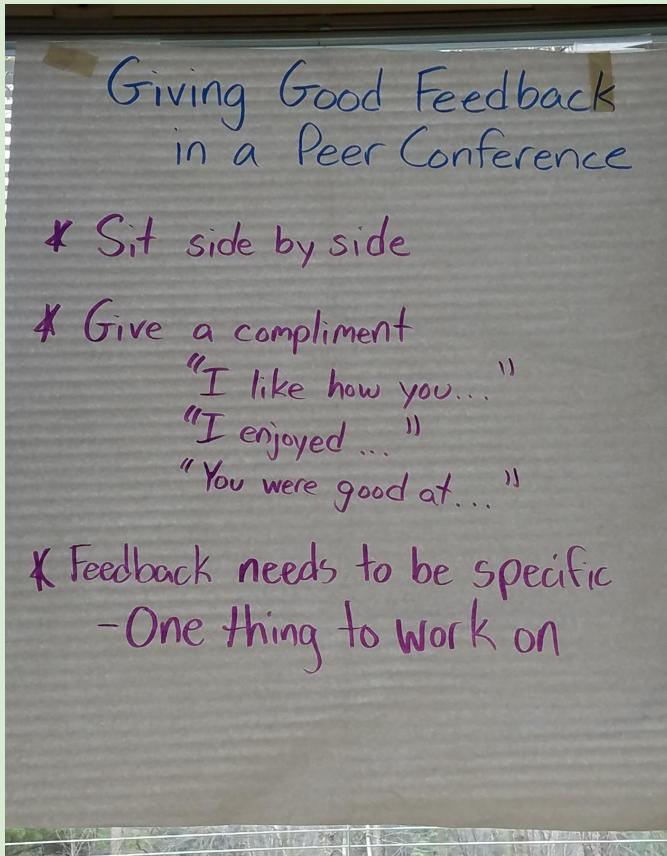 Giving Good Feedback
in a Peer Conference
* Sit side by side
* Give a compliment
"I like how you..."
"I enjoyed..."
"You were good at..."
* Feedback needs to be specific
-One thing to work on